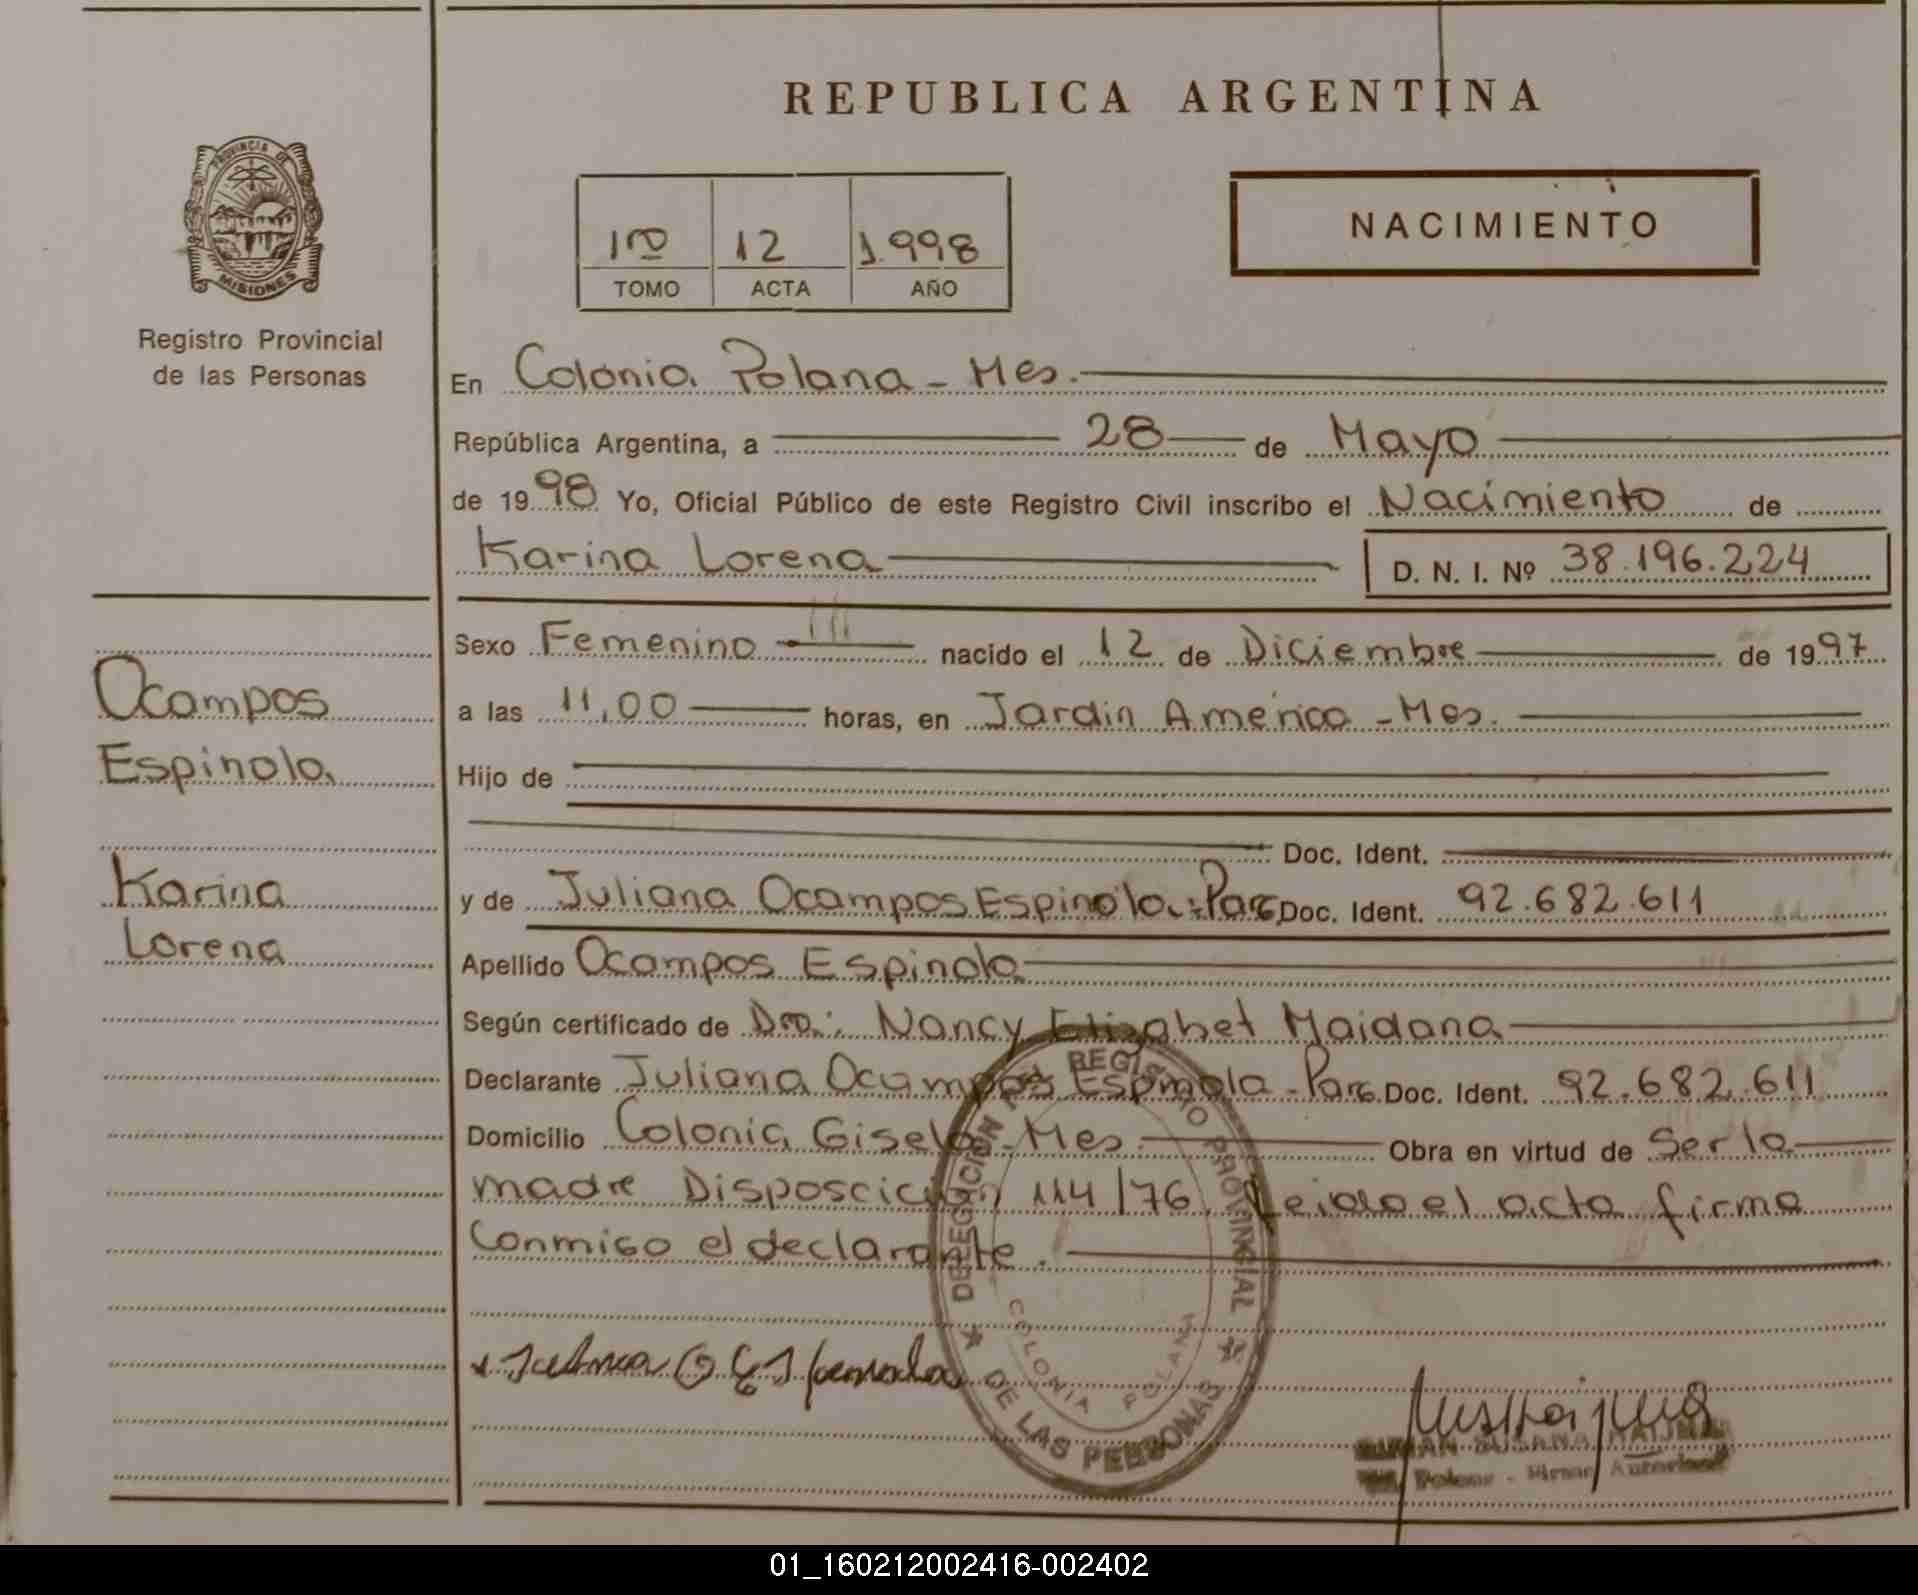 REPUBLICA ARGENTINA
PROVINCIA DE
MISIONES
Registro Provincial
de las Personas
1ro 12 1.998
TOMO ACTA AÑO
NACIMIENTO
En Colonia Polana - Mes.
República Argentina, a 28 de Mayo
de 1998 Yo, Oficial Público de este Registro Civil inscribo el Nacimiento de
Karina Lorena D. N. I. Nº 38.196.224
Ocampos
Espinola
Karina
Lorena
Sexo Femenino nacido el 12 de Diciembre de 1997
a las 11,00 horas, en Jardin América - Mes.
Hijo de
Doc. Ident.
y de Juliana Ocampos Espinola - Parg Doc. Ident. 92.682.611
Apellido Ocampos Espinola
Según certificado de Dra: Nancy Elizabet Maidana
Declarante Juliana Ocampos Espinola - Parg. Doc. Ident. 92.682.611
Domicilio Colonia Gisela - Mes. Obra en virtud de Ser la
madre Disposcición 114/76. Leida el acta firma
Conmigo el declarante.
DELEGACION DEL REGISTRO PROVINCIAL
DE LAS PERSONAS
COLONIA POLANA
SUSANA
01_160212002416-002402